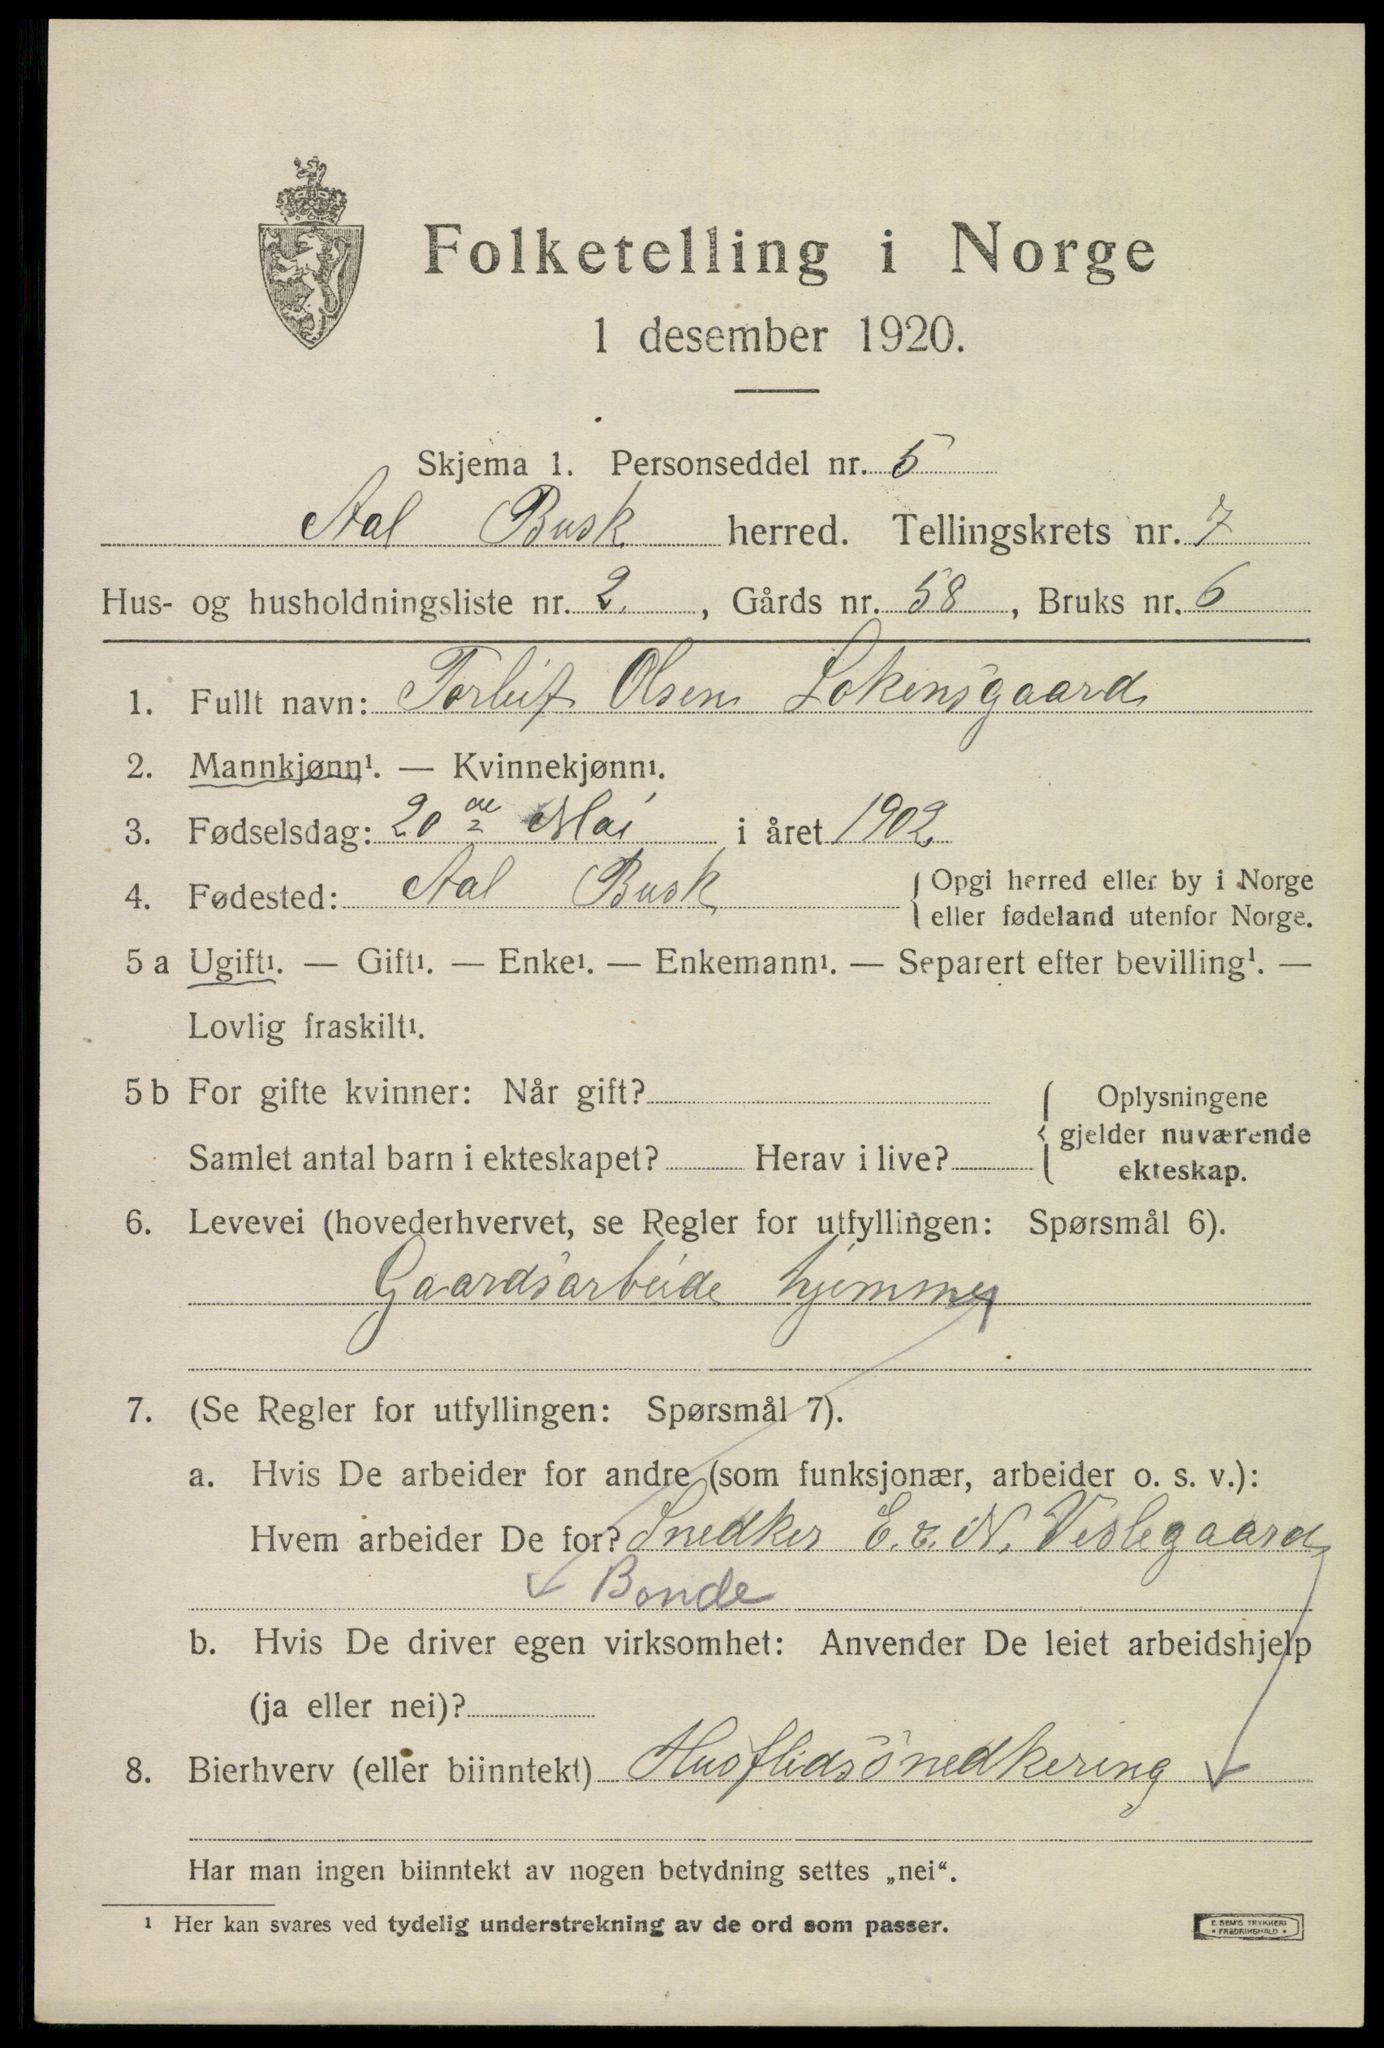 Folketelling i Norge
1 desember 1920.
Skjema 1. Personseddel nr. 5
Aal Busk herred. Tellingskrets nr. 7
Hus- og husholdningsliste nr. 2, Gårds nr. 58, Bruks nr. 6
1. Fullt navn: Torleif Olsen Lokensgaard
2. Mannkjønn¹. — Kvinnekjønn¹.
3. Fødselsdag: 20de Mai i året 1902
4. Fødested: Aal Busk { Opgi herred eller by i Norge
eller fødeland utenfor Norge.
5 a Ugift¹. — Gift¹. — Enke¹. — Enkemann¹. — Separert efter bevilling¹. —
Lovlig fraskilt¹.
5 b For gifte kvinner: Når gift?
Samlet antal barn i ekteskapet? Herav i live?
{ Oplysningene
gjelder nuværende
ekteskap.
6. Levevei (hovederhvervet, se Regler for utfyllingen: Spørsmål 6).
Gaardsarbeide hjemme
7. (Se Regler for utfyllingen: Spørsmål 7).
a. Hvis De arbeider for andre (som funksjonær, arbeider o. s. v.):
Hvem arbeider De for? Snedker E. N. Veslegaard
Bonde
b. Hvis De driver egen virksomhet: Anvender De leiet arbeidshjelp
(ja eller nei)?
8. Bierhverv (eller biinntekt) Husflidssnedkering
Har man ingen biinntekt av nogen betydning settes „nei“.
¹ Her kan svares ved tydelig understrekning av de ord som passer.
E. SEM'S TRYKKERI
* FREDRIKSHALD *